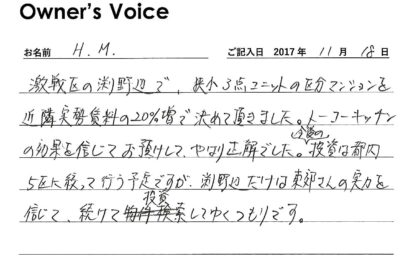 Owner's Voice
お名前 H.M. ご記入日 2017年11月18日
激戦区の渕野辺で、狭小3点ユニットの区分マンションを
近隣実勢賃料の20%増で決めて頂きました。トーコーキッチン
の効果を信じてお預けして、やはり正解でした。今後の投資は都内
5区に絞って行う予定ですが、渕野辺だけは東郊さんの実力を
信じて、続けて投資してゆくつもりです。